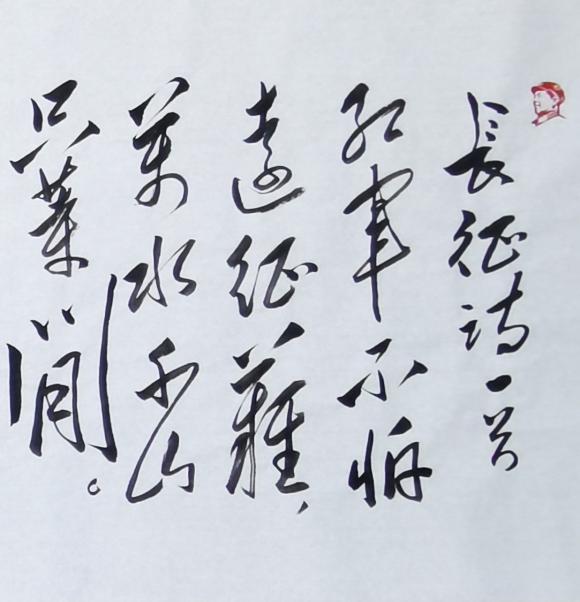 長征詩一首
紅軍不怕
遠征難、
萬水千山
只等閒。